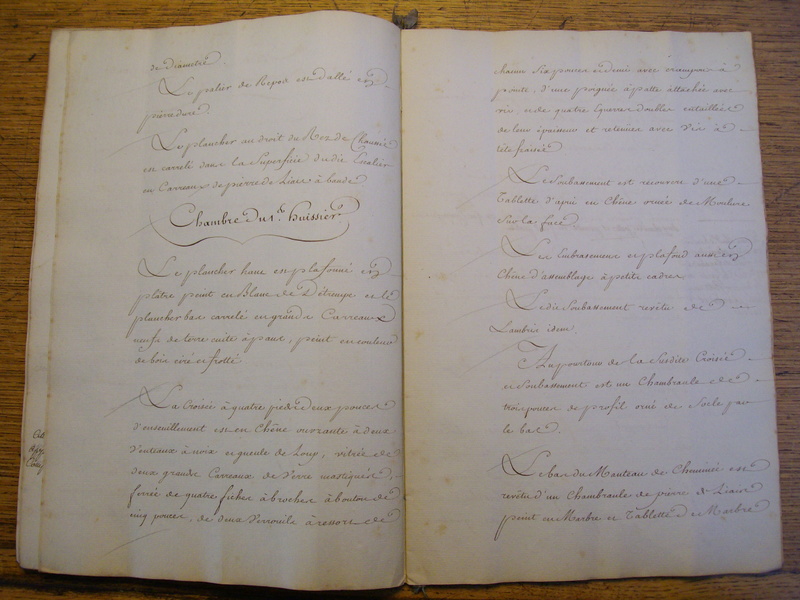 de diametre.
Le palier de Repos est dallé en
pierre dure.
Le plancher au droit du Rez de Chaussée
est carrelé dans la Superficie du dit Escalier
en Carreaux de pierre de Liais à bande
Chambre du 1er. huissier
Le plancher haut est plafonné en
plâtre peint en Blanc de Détrempe et le
plancher bas carrelé en grands Carreaux
neufs de terre cuite à pans, peint en couleur
de bois ciré et frotté.
La Croisée à quatre pieds deux pouces
d'enseuillement est en Chêne ouvrante à deux
vantaux à noix et gueule de Loup, vitrée de
deux grands Carreaux de Verre mastiqués,
ferrée de quatre fiches à broches à bouton de
cinq pouces, de deux Verrouils à ressort de
chacun six pouces et demie avec crampon à
pointe, d'une poignée à patte attachée avec
vis et de quatre Equerres doubles entaillées
de leur épaisseur et retenues avec Vis à
tête fraisée
Le Soubassement est recouvert d'une
Tablette d'apui en Chêne ornée de Moulure
Sur la face.
Les Embrasemens et plafond aussi en
Chêne d'assemblage à petits cadres
Le dit Soubassement revêtu de
Lambris idem.
Au pourtour de la Susdite Croisée
et Soubassement est un Chambranle de
trois pouces de profil orné de Socle par
le bas.
Le bas du Manteau de Cheminée est
revêtu d'un Chambranle de pierre de Liais
peint en Marbre et Tablette de Marbre